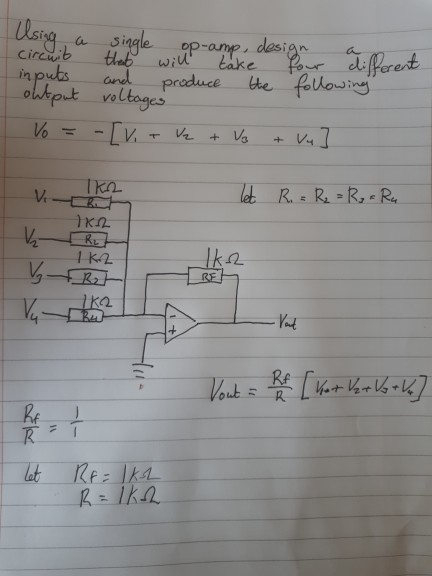 Using a single op-amp, design a
circuit that will take four different
inputs and produce the following
output voltages
V₀ = -[V₁ + V₂ + V₃ + V₄]
1kΩ
V₁ R₁ let R₁ = R₂ = R₃ = R₄
1kΩ
V₂ R₂
1kΩ 1kΩ
V₃ R₃ RF
1kΩ
V₄ R₄ - Vout
+
Vout = Rf/R [V₁+V₂+V₃+V₄]
Rf/R = 1/1
let Rf = 1kΩ
R = 1kΩ